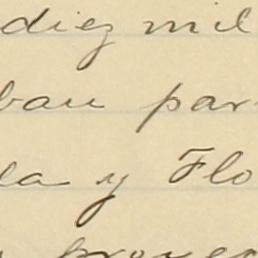 diez mil
ban par
la y Flo
proyec